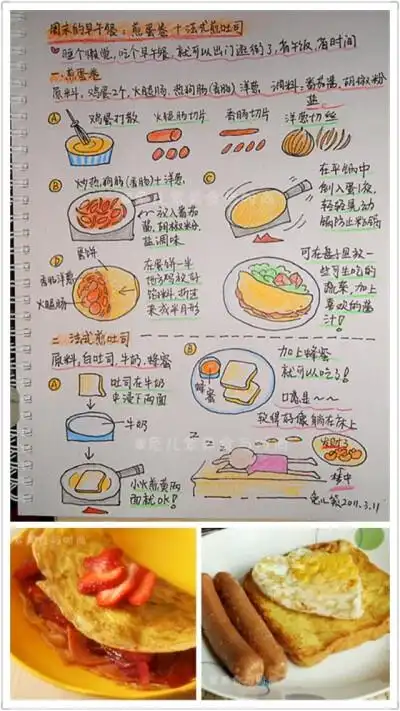 周末的早午餐：煎蛋卷＋法式煎吐司
睡个懒觉，吃个早午餐，就可以出门逛街了，省午饭，省时间
一.煎蛋卷
原料：鸡蛋2个，火腿肠，热狗肠(香肠)洋葱 调料：番茄酱，胡椒粉
盐
A 鸡蛋打散 火腿肠切片 香肠切片 洋葱切丝
B 炒热狗肠(香肠)＋洋葱
放入番茄
酱，胡椒粉，
盐调味
C 在平锅中
倒入蛋液，
轻轻晃动
锅防止粘锅
D 蛋饼
香肠洋葱
火腿肠
在蛋饼一半
地方放好
馅料，折过
来成半月形
可在盘子里放一
些可生吃的
蔬菜，加上
喜欢的酱
汁！
二 法式煎吐司
原料，白吐司 牛奶，蜂蜜
A 吐司在牛奶
中浸下两面
牛奶
小火煎黄两
面就OK！
B 加上蜂蜜
就可以吃了！
蜂蜜
口感是～～
软得好像躺在床上
z z z
梦中
2011.3.11